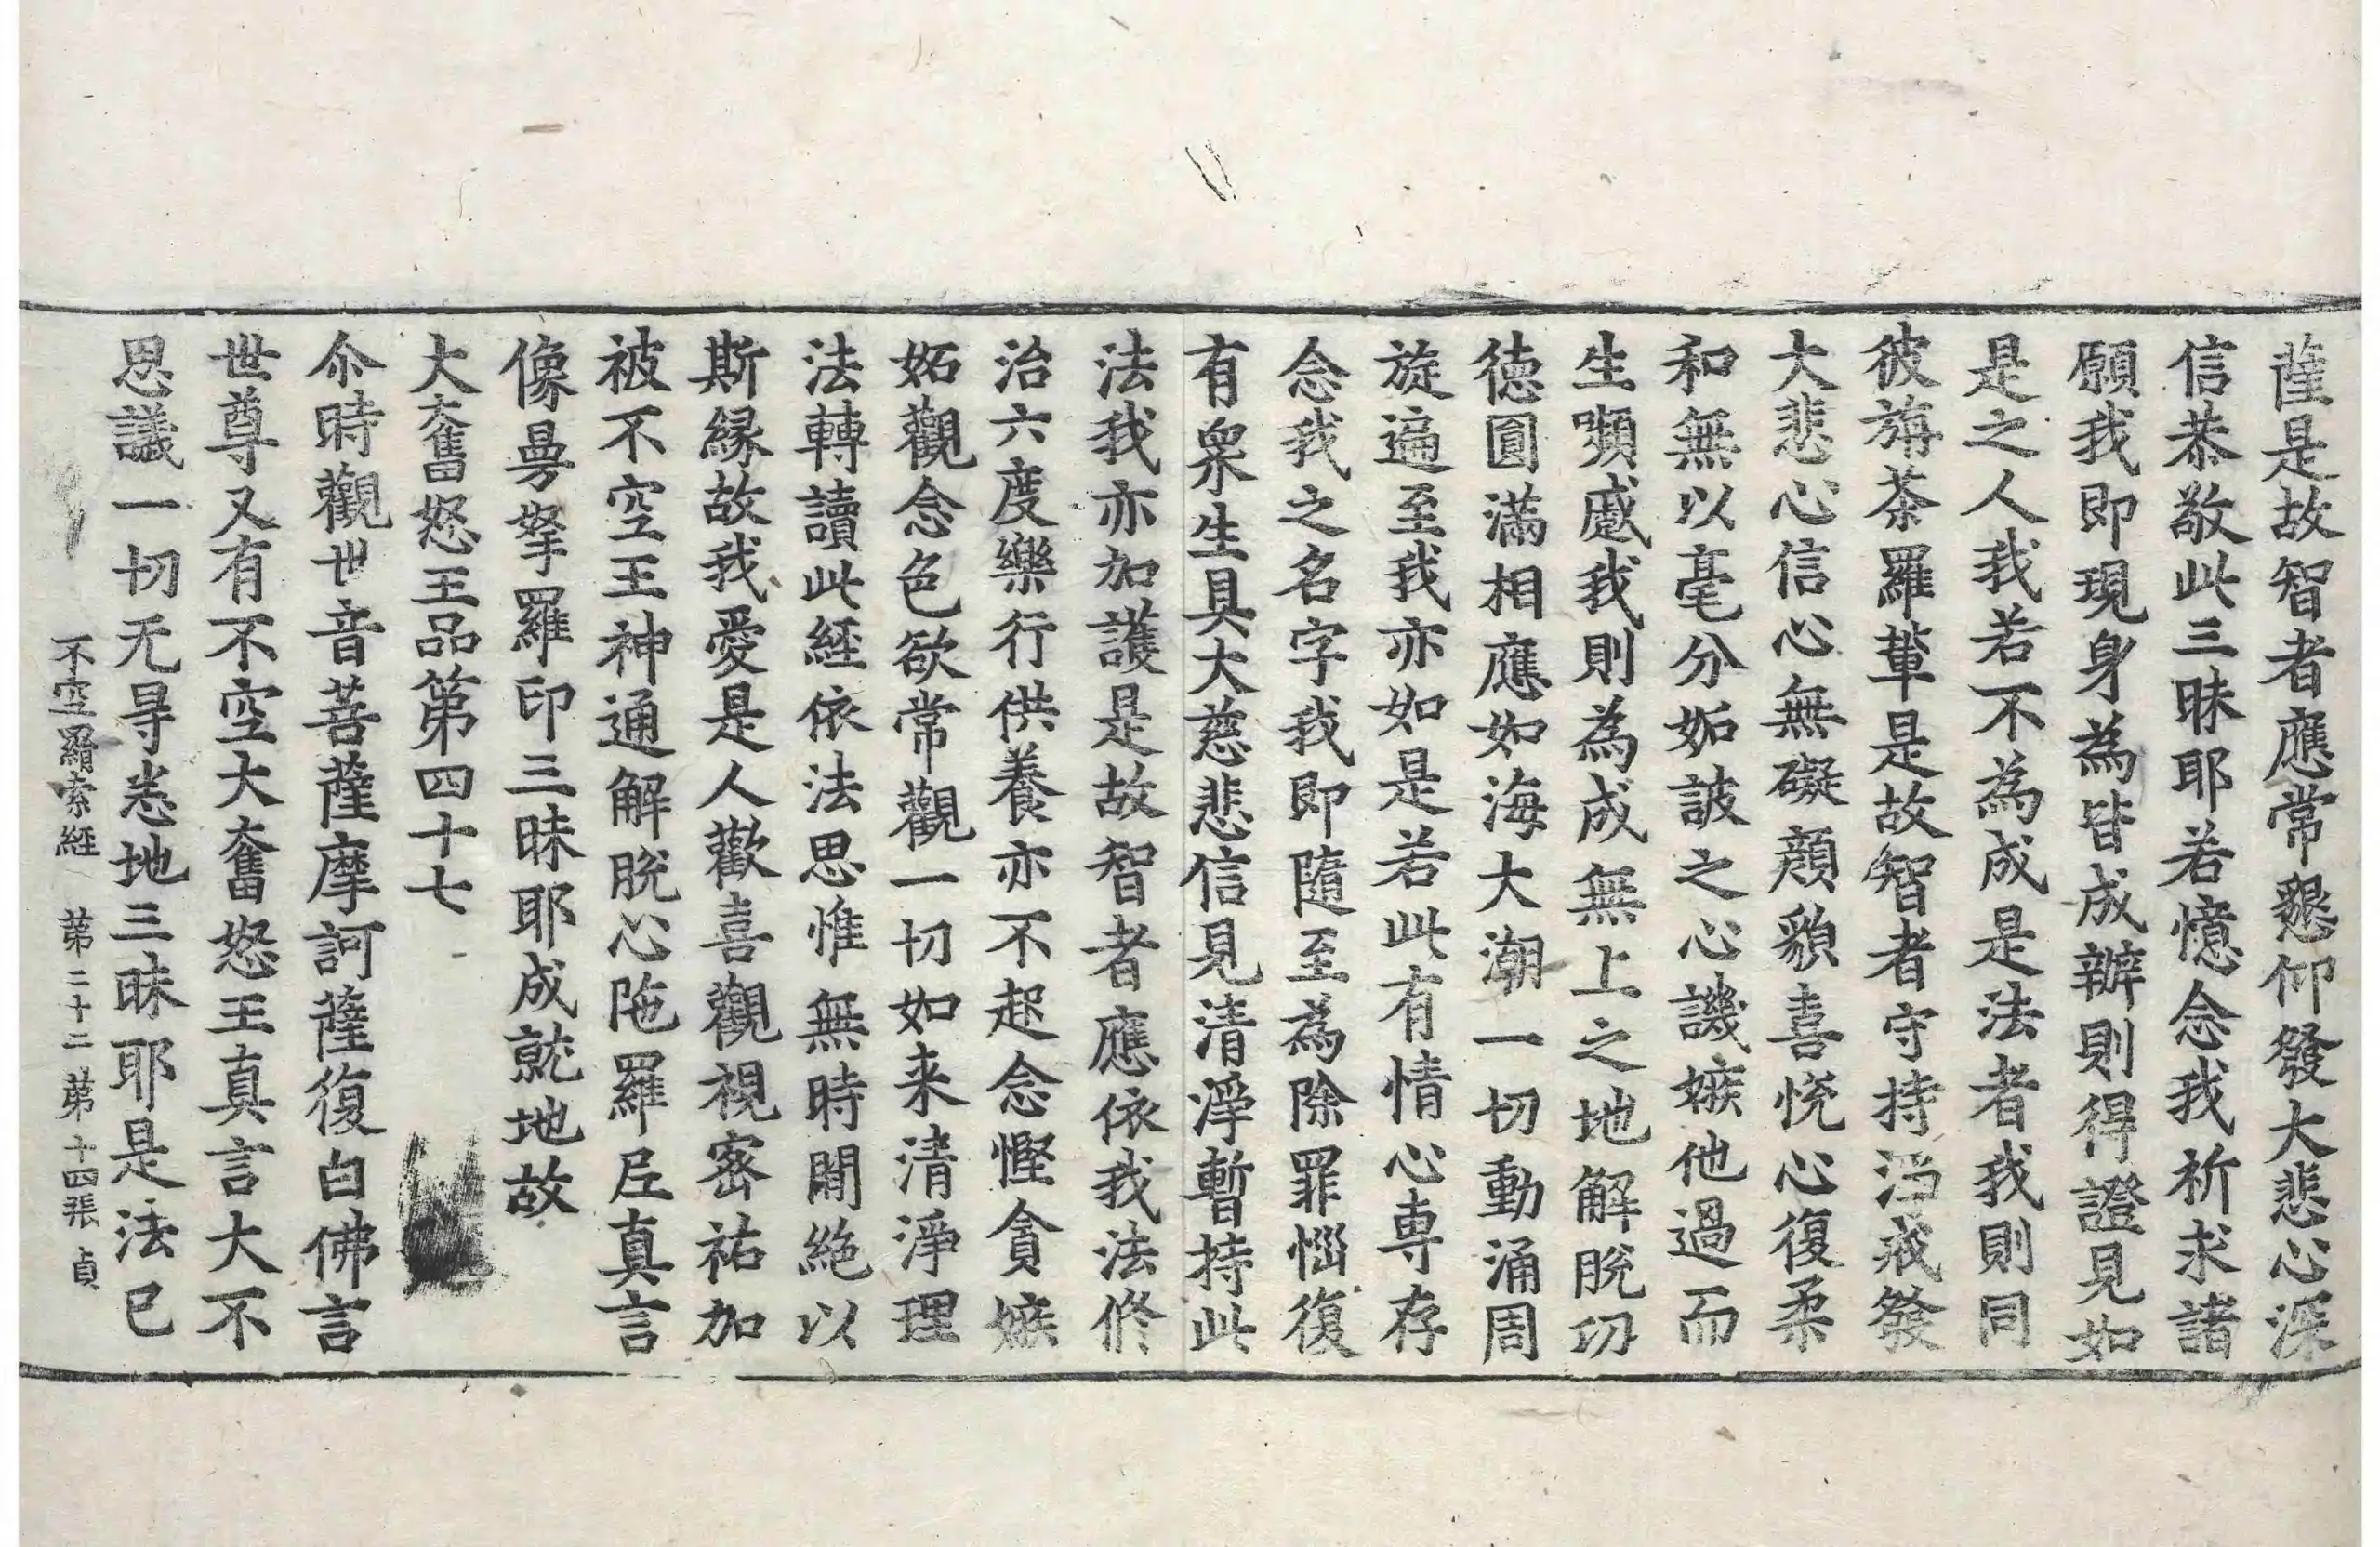 薩是故智者應常懇仰發大悲心深
信恭敬此三昧耶若憶念我祈求諸
願我即現身為皆成辦則得證見如
是之人我若不為成是法者我則同
彼旃茶羅輩是故智者守持淨戒發
大悲心信心無礙顏貌喜悅心復柔
和無以毫分妬詖之心譏嫉他過而
生嚬慼我則為成無上之地解脫功
德圓滿相應如海大潮一切動涌周
旋遍至我亦如是若此有情心專存
念我之名字我即隨至為除罪惱復
有衆生具大慈悲信見清淨暫持此
法我亦加護是故智者應依我法修
治六度樂行供養亦不起念慳貪嫉
妬觀念色欲常觀一切如来清淨理
法轉讀此經依法思惟無時閒絶以
斯緣故我愛是人歡喜觀視密祐加
被不空王神通解脫心陁羅尼真言
像曼拏羅印三昧耶成就地故
大奮怒王品第四十七
尒時觀世音菩薩摩訶薩復白佛言
世尊又有不空大奮怒王真言大不
思議一切无㝵悉地三昧耶是法已
不空羂索經 第二十二 第十四張 貞